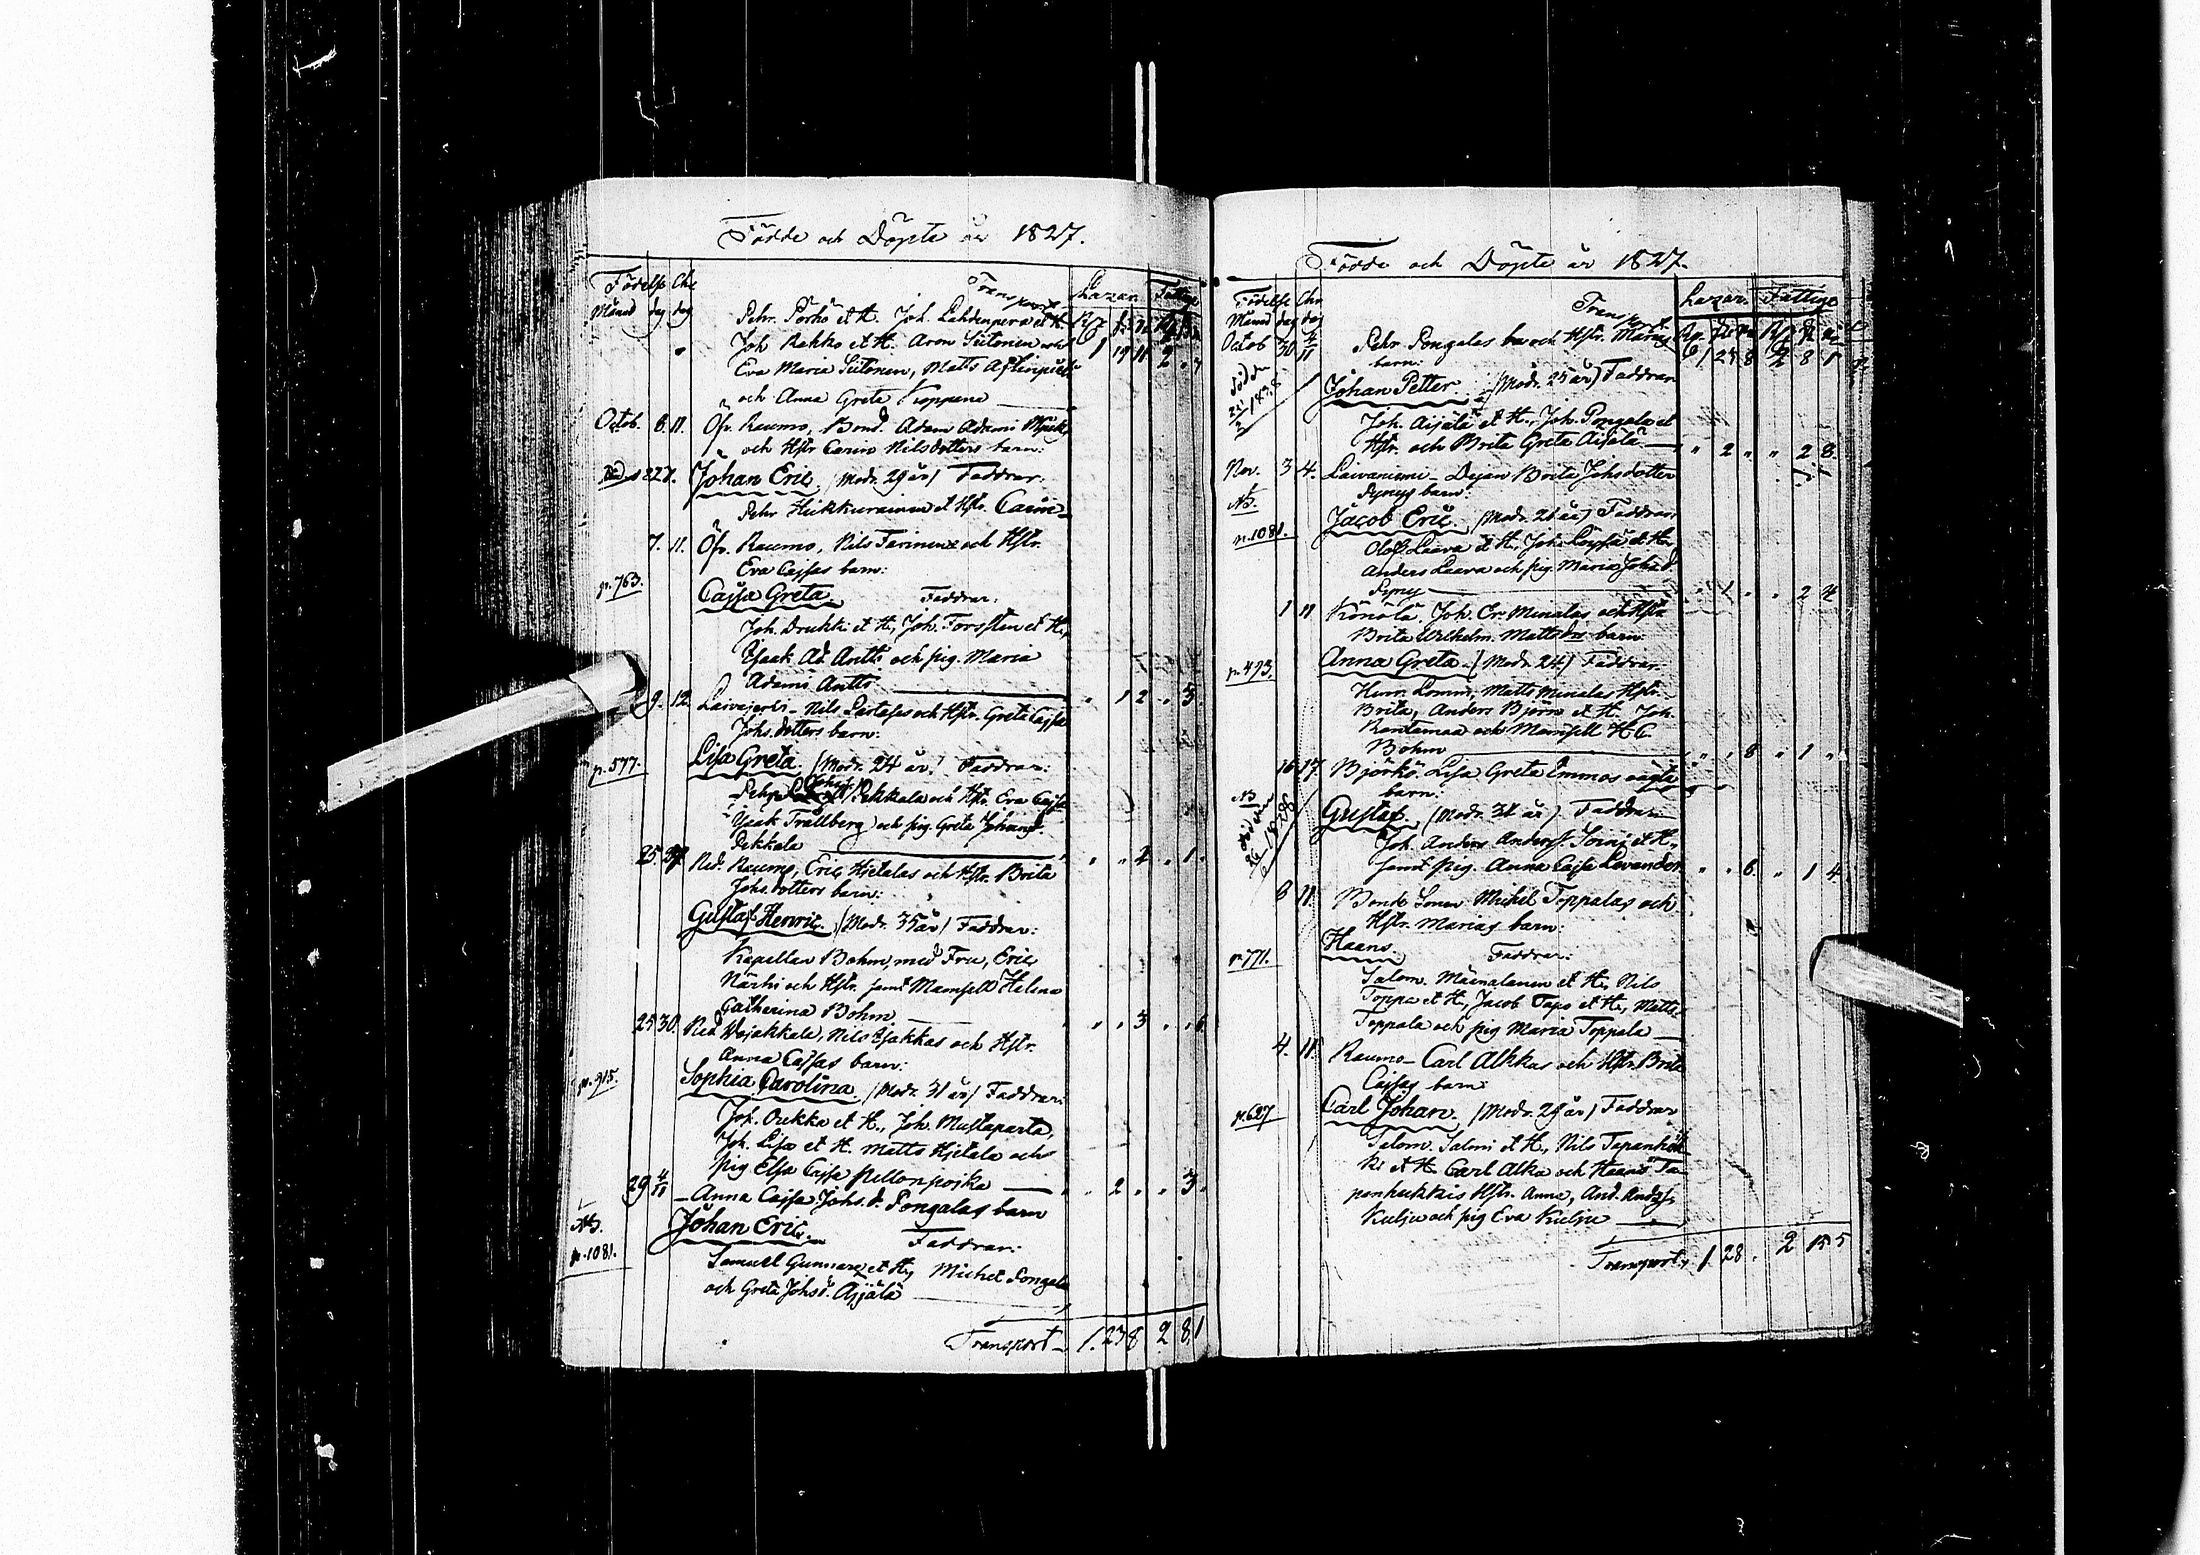 Födde och Döpte år 1827.
Födelse Chr
Månad dag dag
Transport
Lazar. Fattige
Pehr Pörhö et H. Joh. Lahdenperä et H.
Joh Rahko et H. Aron Siitonen och
1 19 11 2 . 7
Eva Maria Siitonen, Matts
och Anna Greta Koppana
Octob. 6. 11. Öfr. Raumo, Bond. Adam Adami
och Hstr Carin Nilsdotters barn:
Johan Eric. (Modr. 29 år) Faddrar:
Pehr Hiekkurainen et Hstr. Carin
7. 11. Öfr. Raumo, Nils Tarinens och Hstr.
Eva Cajsas barn:
p. 763. Cajsa Greta. Faddrar:
Joh. Drukki et H., Joh. Forssten et H.,
Isaak Ad. Antti och pig. Maria
Adami Antti " 1 2 . . 3.
9. 12. Laivajerfi - Nils och Hstr. Greta Cajsa
Johs. dotters barn:
p. 577. Lisa Greta. (Modr. 24 år) Faddrar:
Pehr Johs. Pekkala och Hstr. Eva Cajsa
Isaak Trällberg och pig. Greta Johansd.
Pekkala " . 2 . 1 .
25. 27. Ned. Raumo, Eric Hietalas och Hstr. Brita
Johs. dotters barn:
Gustaf Henric. (Modr. 35 år) Faddrar:
Kapellan Bohm, med Fru, Eric
Närhi och Hstr. samt Mamsell Helena
Catherina Bohm " . 3 . . 6
25 30. Ned Wojakkala, Nils Isakkas och Hstr.
Anna Cajsas barn:
p. 915. Sophia Carolina. (Modr. 31 år) Faddrar:
Joh. Oukka et H., Joh. Mustaparta,
Joh. Lisa et H. Matts Hietala och
pig Elsa Cajsa Pellonpoika . . 2 . . 3.
29 4/11 - Anna Cajsa Johs. d. Pongalas barn
NB. Johan Eric. Faddrar:
p. 1081. Samuel Gunnare et H., Michel Pongala
och Greta Johsd. Äijälä
Transport - 1. 23 8 2 8 1
Födde och Döpte år 1827.
Födelse Chr
Månad dag dag
Transport
Lazar. Fattige
Octob 30 4/11 Pehr Pongalas b och Hstr. Marias
1 23 8 2 8 1
barn:
Johan Petter (Modr. 25 år) Faddrar
Joh. Äijälä et H., Joh. Pongala et
Hstr. och Brita Greta Äijälä " 2 . " 2 8.
Nov. 3 4. Laivaniemi - Pigan Brita Johsdotter
Pynys barn:
NB. Jacob Eric. (Modr. 21 år) Faddrar
p. 1081. Olof Laava et H., Joh. et H.
Anders Laava och pig. Maria Johsd.
Pyny . 1 . . 2 4
1 11 Könölä. Joh. Er. Minalas och Hstr
Brita Wilhelm. Mattsdrs barn
p. 493. Anna Greta. (Modr. 24) Faddrar
Henr. Lomm, Matts Minalas Hstr.
Brita, Anders Björn et H. Joh.
Rantamaa och Mamsell H C
Bohm . . 8 " 1 "
16 17. Björkö. Lisa Greta Emmos oägta
barn:
NB döden 26/6 1828
Gustaf. (Modr. 31 år) Faddrar
Joh. Anders Anderss. et H.,
samt pig. Anna Cajsa Levander . . 8. " 1 4.
8 11 Bonde Sonen Michel Toppalas och
Hstr. Marias barn:
p. 771. Haans. Faddrar:
Salom. Mäinalanen et H., Nils
Toppa et H., Jacob Tapo et H., Matts
Toppala och pig Maria Toppala
4. 11. Raumo - Carl Alkkas och Hstr. Brita
Cajsas barn
p. 627 Carl Johan. (Modr. 29 år) Faddrar
Salom. Salomi et H., Nils Tapanhäk-
ki et H. Carl Alka och Haans Ta-
panhäkkis Hstr. Anna, And. Andss.
Kulju och pig Eva Kulju
Transport. 1 28 . 2 15 5